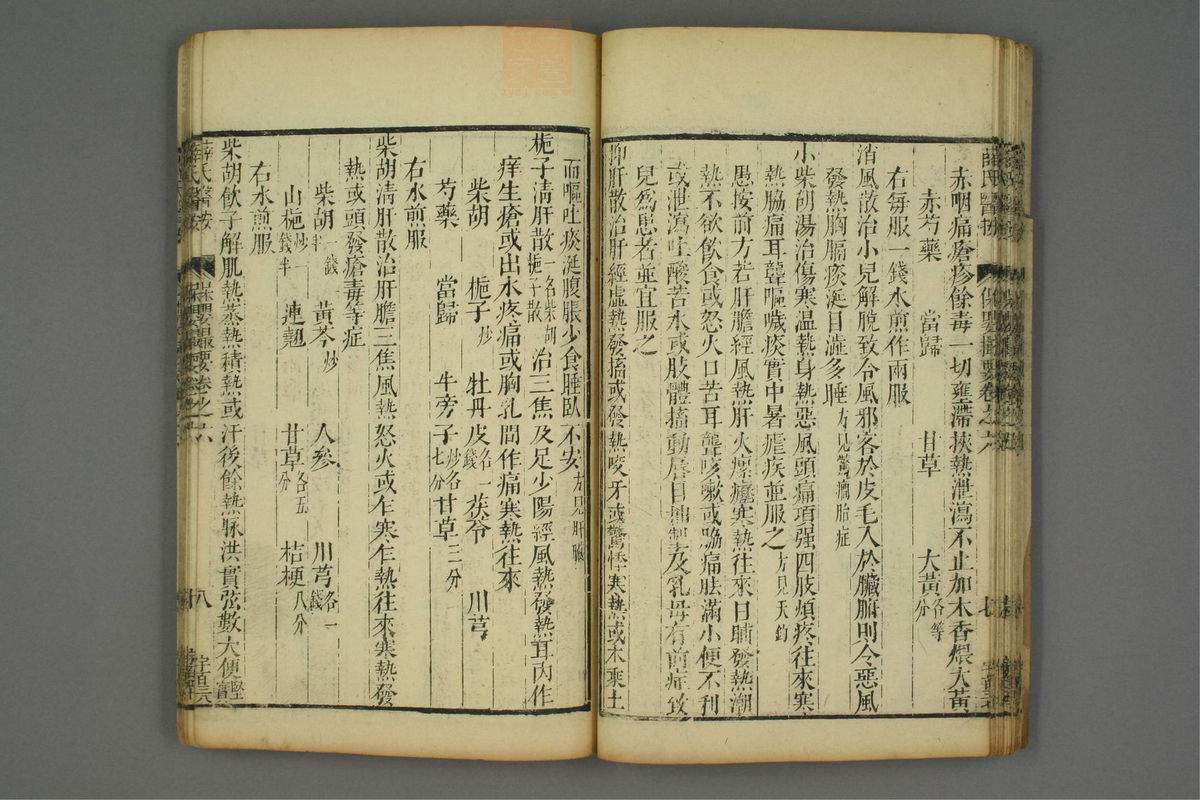 赤咽痛瘡疹餘毒一切壅滯挾熱泄瀉不止加木香煨大黃
赤芍藥 當歸 甘草 大黃各等分
右每服一錢水煎作兩服
消風散治小兒解脫致令風邪客於皮毛入於臟腑則令惡風
發熱胸膈痰涎目澁多睡方見驚癇胎症
小柴胡湯治傷寒溫熱身熱惡風頭痛項强四肢煩疼往來寒
熱脇痛耳聾嘔噦痰實中暑瘧疾並服之方見天釣
愚按前方若肝膽經風熱肝火瘰癧寒熱往來日晡發熱潮
熱不欲飲食或怒火口苦耳聾咳嗽或脇痛胠滿小便不利
或泄瀉吐酸苦水或肢體搐動唇目抽掣及乳母有前症致
兒爲患者並宜服之
抑肝散治肝經虛熱發搐或發熱咬牙或驚悸寒熱或木乘土
而嘔吐痰涎腹脹少食睡臥不安方見肝臟
梔子清肝散一名柴胡梔子散治三焦及足少陽經風熱發熱耳內作
痒生瘡或出水疼痛或胸乳間作痛寒熱往來
柴胡 梔子炒 牡丹皮各一錢 茯苓 川芎
芍藥 當歸 牛旁子炒各七分 甘草二分
右水煎服
柴胡清肝散治肝膽三焦風熱怒火或乍寒乍熱往來寒熱發
熱或頭發瘡毒等症
柴胡一錢半 黃芩炒 人參 川芎各一錢
山梔炒一錢半 連翹 甘草各五分 桔梗八分
右水煎服
柴胡飲子解肌熱蒸熱積熱或汗後餘熱脉洪實弦數大便堅實
薛氏醫按 保嬰撮要卷之六 八